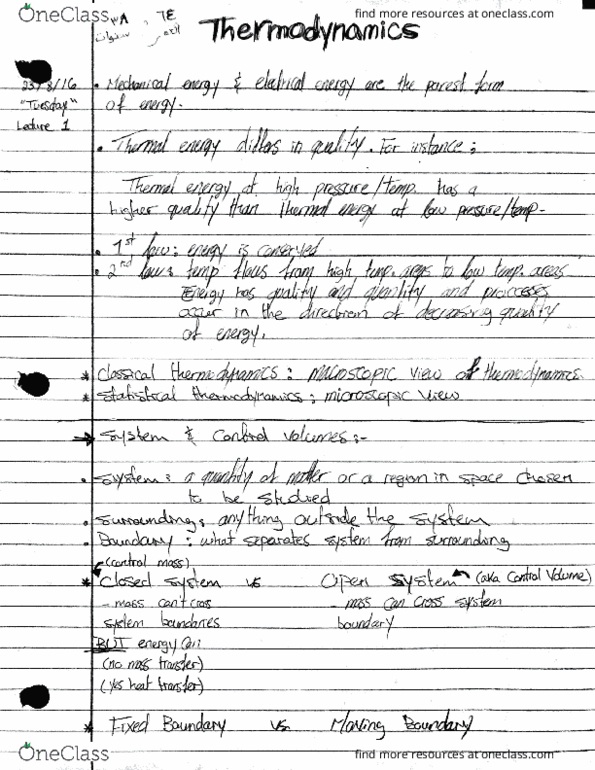 OneClass
find more resources at oneclass.com
Thermodynamics
23/8/16
"Tuesday"
Lecture 1
• Mechanical energy & eletrical energy are the purest form
of energy.
• Thermal energy differs in quality. For instance:
Thermal energy at high pressure/temp. has a
higher quality than thermal energy at low pressure/temp.
• 1st law: energy is conserved
• 2nd law: temp flows from high temp. areas to low temp. areas
Energy has quality and quantity and processes
occur in the direction of decreasing quality
of energy.
* Classical thermodynamics: macrostopic view of thermodynamics.
* Statistical thermodynamics: microstopic view
→ System & Control volumes:-
• System: a quantity of matter or a region in space chosen
to be studied
• Surrounding: anything outside the system
• Boundary: what separates system from surrounding
(control mass)
* Closed system vs Open system (aka Control Volume)
- mass can't cross - mass can cross system
system boundaries boundary
BUT energy can
(no mass transfer)
(yes heat transfer)
* Fixed Boundary vs. Moving Boundary
OneClass
find more resources at oneclass.com